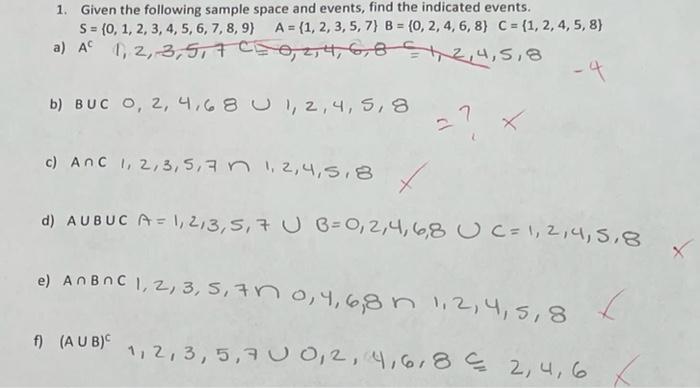 1. Given the following sample space and events, find the indicated events.
S = {0, 1, 2, 3, 4, 5, 6, 7, 8, 9} A = {1, 2, 3, 5, 7} B = {0, 2, 4, 6, 8} C = {1, 2, 4, 5, 8}
a) Aᶜ 1, 2, 3, 5, 7 C = 0, 2, 4, 6, 8 C = 1, 2, 4, 5, 8
-4
b) B U C 0, 2, 4, 6 8 U 1, 2, 4, 5, 8
= ? x
c) A ∩ C 1, 2, 3, 5, 7 ∩ 1, 2, 4, 5, 8 x
d) A U B U C A = 1, 2, 3, 5, 7 U B = 0, 2, 4, 6, 8 U C = 1, 2, 4, 5, 8 x
e) A ∩ B ∩ C 1, 2, 3, 5, 7 ∩ 0, 4, 6, 8 ∩ 1, 2, 4, 5, 8 x
f) (A U B)ᶜ 1, 2, 3, 5, 7 U 0, 2, 4, 6, 8 C = 2, 4, 6 x